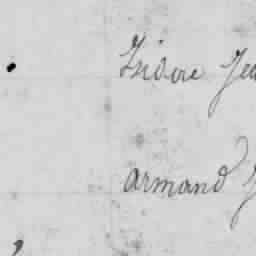 Isidore Jea
armand J